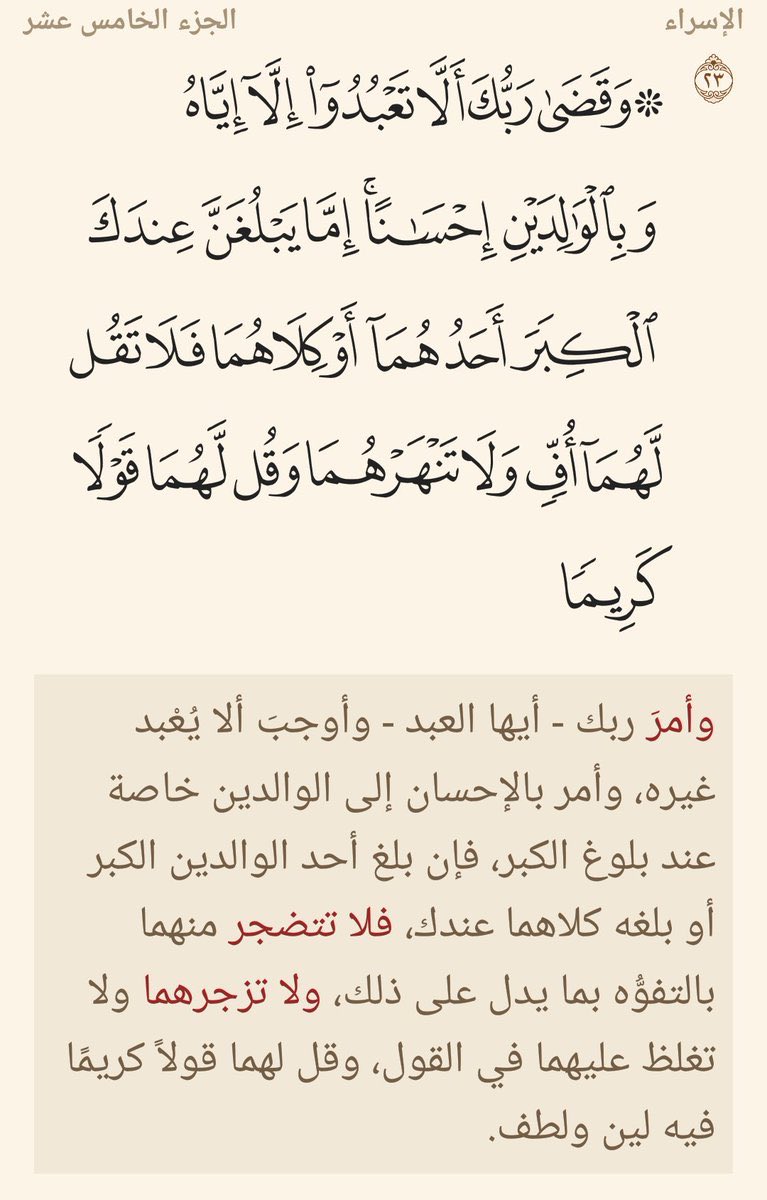 الإسراء الجزء الخامس عشر
٢٣
۞ وَقَضَىٰ رَبُّكَ أَلَّا تَعْبُدُوٓا۟ إِلَّآ إِيَّاهُ
وَبِٱلْوَٰلِدَيْنِ إِحْسَـٰنًا ۚ إِمَّا يَبْلُغَنَّ عِندَكَ
ٱلْكِبَرَ أَحَدُهُمَآ أَوْ كِلَاهُمَا فَلَا تَقُل
لَّهُمَآ أُفٍّ وَلَا تَنْهَرْهُمَا وَقُل لَّهُمَا قَوْلًا
كَرِيمًا
وأمرَ ربك - أيها العبد - وأوجبَ ألا يُعْبد
غيره، وأمر بالإحسان إلى الوالدين خاصة
عند بلوغ الكبر، فإن بلغ أحد الوالدين الكبر
أو بلغه كلاهما عندك، فلا تتضجر منهما
بالتفوُّه بما يدل على ذلك، ولا تزجرهما ولا
تغلظ عليهما في القول، وقل لهما قولاً كريمًا
فيه لين ولطف.